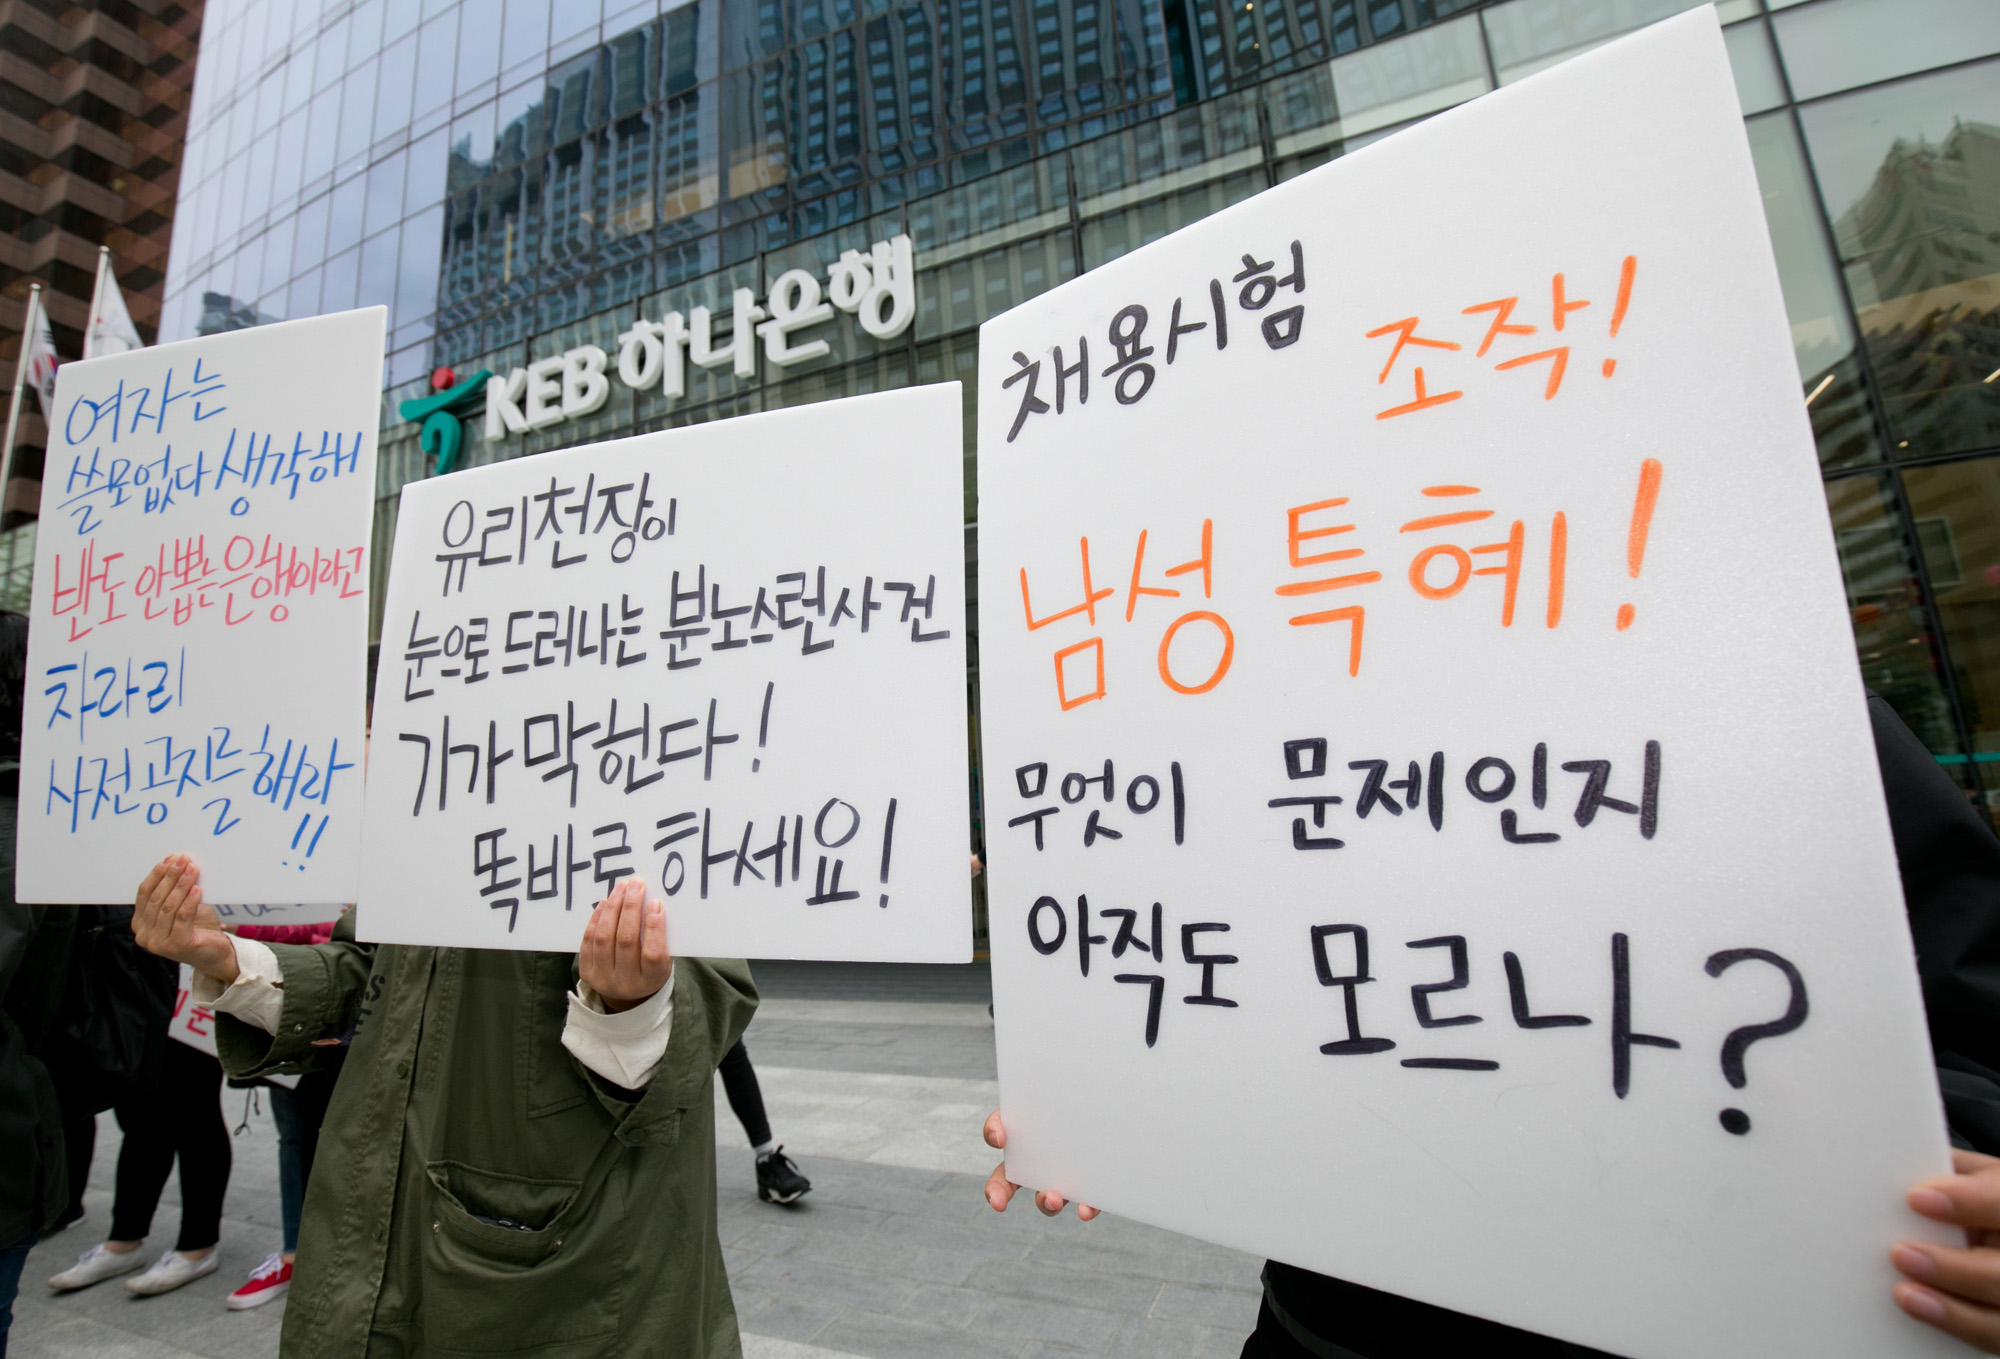 KEB 하나은행
여자는
쓸모없다 생각해
반도 안뽑는 은행이라고
차라리
사전공지를 해라
!!
유리천장이
눈으로 드러나는 분노스런 사건
기가 막힌다!
똑바로 하세요!
채용시험 조작!
남성 특혜!
무엇이 문제인지
아직도 모르나?